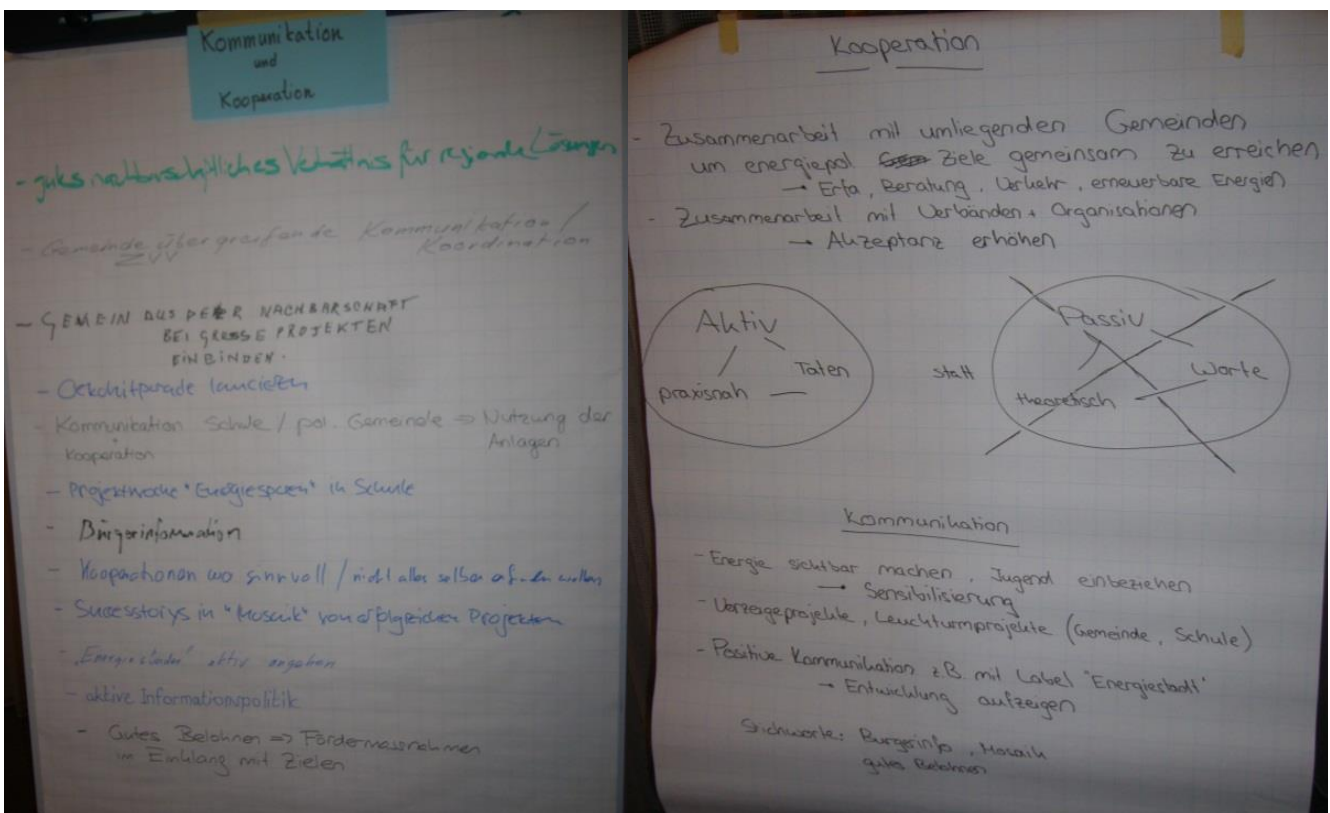 Kommunikation
und
Kooperation
- gutes nachbarschftliches Verhältnis für regionale Lösungen
- Gemeinde übergreifende Kommunikation /
Koordination
- GEMEIN AUS DER NACHBARSCHAFT
BEI GROSSE PROJEKTEN
EINBINDEN.
- Oekohitparade lancieren
- Kommunikation Schule / pol. Gemeinde => Nutzung der
Kooperation Anlagen
- Projektwoche "Energiesparen" in Schule
- Bürgerinformation
- Kooperationen wo sinnvoll / nicht alles selber wollen
- Successtorys in "Mosaik" von erfolgreichen Projekten
- "Energiesünder" aktiv angehen
- aktive Informationspolitik
- Gutes Belohnen => Fördermassnahmen
im Einklang mit Zielen
Kooperation
- Zusammenarbeit mit umliegenden Gemeinden
um energiepol Ziele gemeinsam zu erreichen
→ Erfa, Beratung, Verkehr, erneuerbare Energien
- Zusammenarbeit mit Verbänden + Organisationen
→ Akzeptanz erhöhen
Aktiv
Taten
praxisnah
statt
Passiv
Worte
theoretisch
Kommunikation
- Energie sichtbar machen, Jugend einbeziehen
→ Sensibilisierung
- Vorzeigeprojekte, Leuchturmprojekte (Gemeinde, Schule)
- Positive Kommunikation z.B. mit Label "Energiestadt"
→ Entwicklung aufzeigen
Stichworte: Bürgerinfo, Mosaik
gutes Belohnen